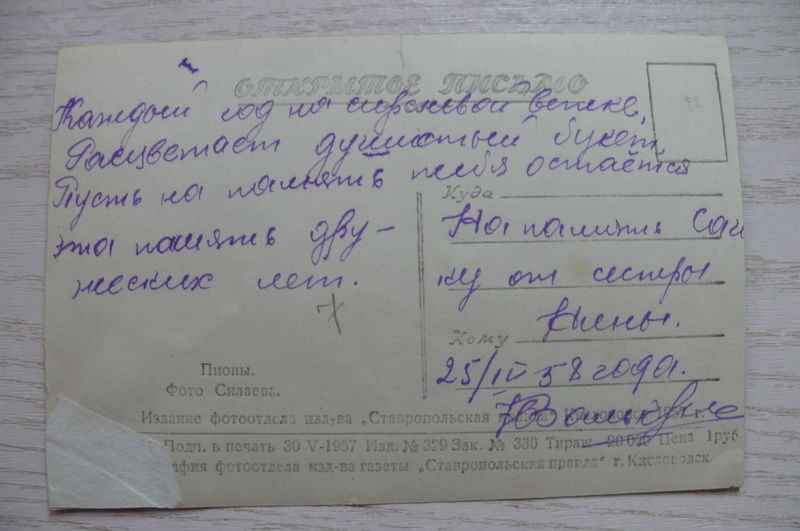 ОТКРЫТОЕ ПИСЬМО
Каждый год на сиреневой ветке,
Расцветает душистый букет,
Пусть на память тебя остаётся
эта память дру-
жеских лет.
7
Куда
На память Саш
ку от сестры
Нины.
Кому
25/IV 58 года.
Пионы.
Фото Силаева.
Издание фотоотдела изд-ва „Ставропольская Кисловодск г.
Подп. в печать 30 V-1957 Изд. № 399 Зак. № 330 Тираж 20 000 Цена 1руб.
графия фотоотдела изд-ва газеты „Ставропольская правда" г. Кисловодск